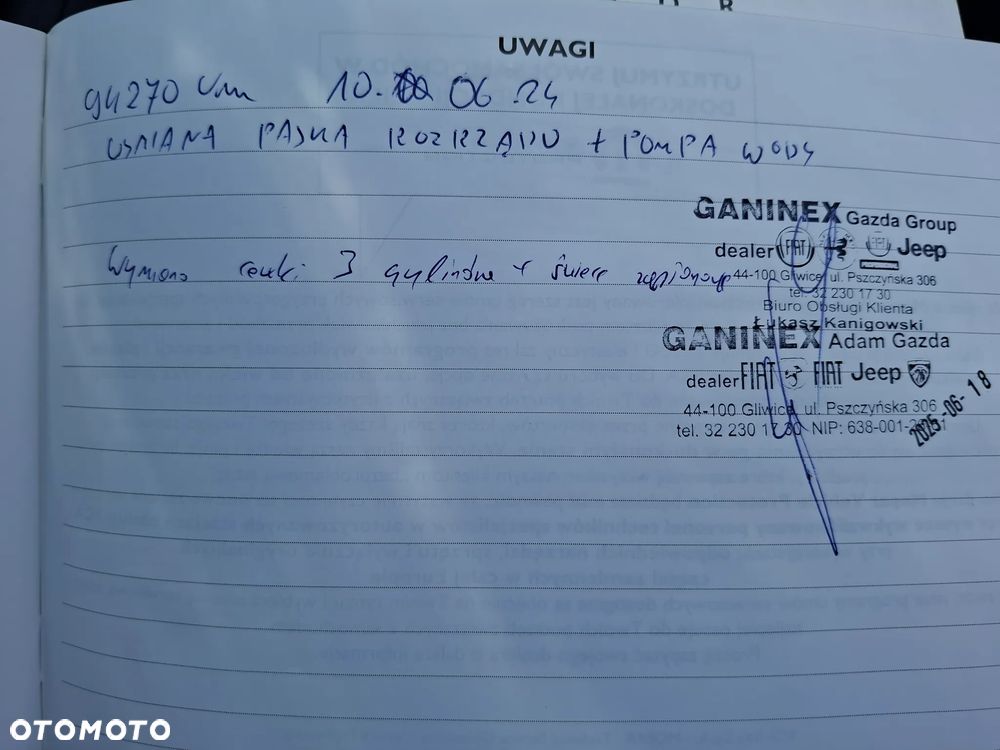 UWAGI
94270 km 10. 06.24
WYMIANA PASKA ROZRZĄDU + POMPA WODY
GANINEX Gazda Group
dealer FIAT Jeep
Wymiana cewki 3 cylindra + świec zapłonowych
44-100 Gliwice, ul. Pszczyńska 306
tel. 32 230 17 30
Biuro Obsługi Klienta
Łukasz Kanigowski
GANINEX Adam Gazda
dealer FIAT FIAT Jeep
44-100 Gliwice, ul. Pszczyńska 306
tel. 32 230 17 30 NIP: 638-001-
2025-06-18
OTOMOTO